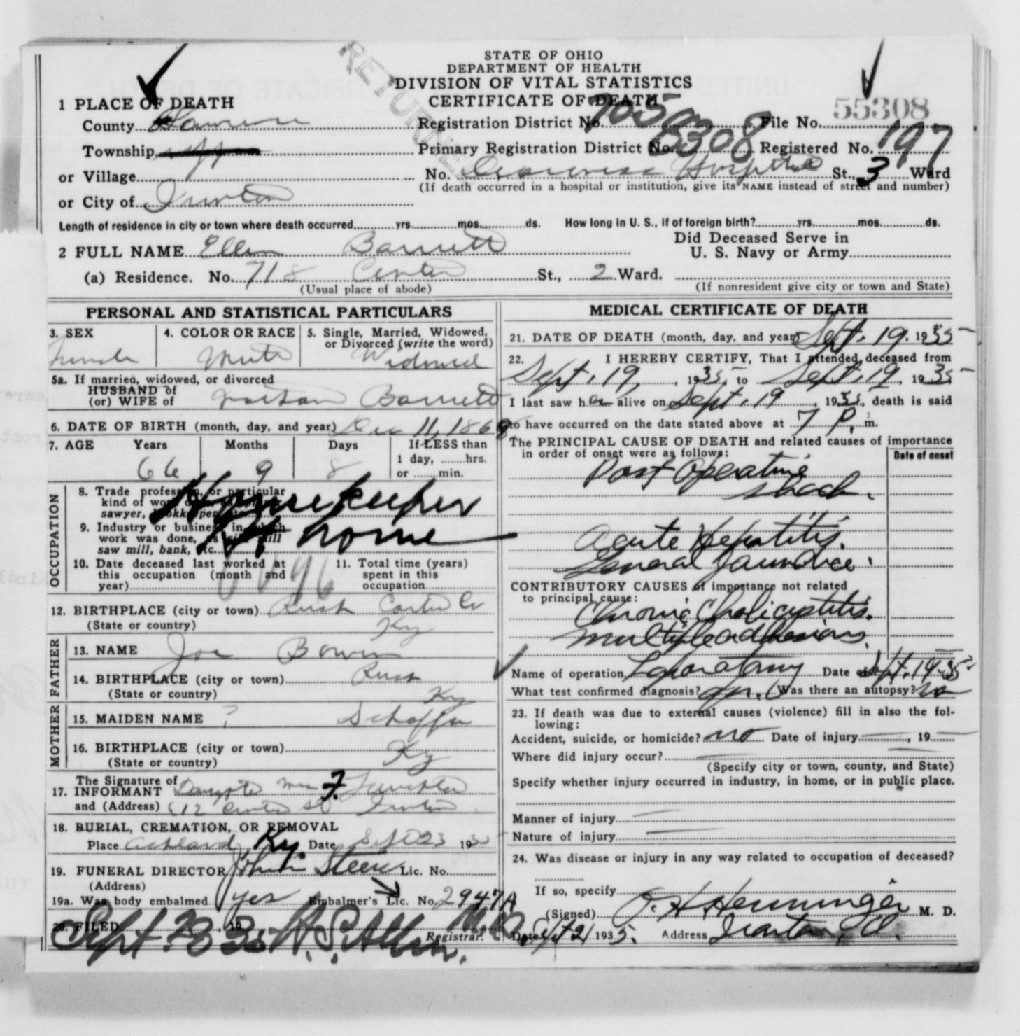 STATE OF OHIO
DEPARTMENT OF HEALTH
DIVISION OF VITAL STATISTICS
CERTIFICATE OF DEATH
1 PLACE OF DEATH
55308
County Registration District No. 705 File No.
Township Primary Registration District No. 8308 Registered No. 197
or Village No. Hospital St., 3 Ward
(If death occurred in a hospital or institution, give its NAME instead of street and number)
or City of Ironton
Length of residence in city or town where death occurred yrs. mos. ds. How long in U. S., if of foreign birth? yrs. mos. ds.
2 FULL NAME Ellen Barnett Did Deceased Serve in
U. S. Navy or Army
(a) Residence. No. 718 Center St., 2 Ward.
(Usual place of abode) (If nonresident give city or town and State)
PERSONAL AND STATISTICAL PARTICULARS
3. SEX 4. COLOR OR RACE 5. Single, Married, Widowed,
or Divorced (write the word)
Female White Widowed
5a. If married, widowed, or divorced
HUSBAND of
(or) WIFE of Barnett
6. DATE OF BIRTH (month, day, and year) Dec 11, 186
7. AGE Years Months Days If LESS than
1 day, hrs.
or min.
66 9 8
OCCUPATION
8. Trade profession, or particular
kind of work
sawyer, bookkeeper Housekeeper
9. Industry or business in which
work was done, as silk mill
saw mill, bank, etc. At home
10. Date deceased last worked at
this occupation (month and
year)
11. Total time (years)
spent in this
occupation
12. BIRTHPLACE (city or town) Rush Carter Co
(State or country) Ky
FATHER
13. NAME Joe Bowen
14. BIRTHPLACE (city or town) Rush
(State or country) Ky
MOTHER
15. MAIDEN NAME ?
16. BIRTHPLACE (city or town)
(State or country) Ky
The Signature of
17. INFORMANT Mrs F.
and (Address) Center St Ironton
18. BURIAL, CREMATION, OR REMOVAL
Place Ashland, Ky. Date Sept 23 1935
19. FUNERAL DIRECTOR John Steen Lic. No.
(Address)
19a. Was body embalmed yes Embalmer's Lic. No. 2947A
20. FILED Sept 23 35 M.D.
Registrar.
MEDICAL CERTIFICATE OF DEATH
21. DATE OF DEATH (month, day, and year) Sept. 19. 1935
22. I HEREBY CERTIFY, That I attended deceased from
Sept. 19, 1935, to Sept. 19 1935
I last saw her alive on Sept. 19 1935, death is said
to have occurred on the date stated above at 7 P. m.
The PRINCIPAL CAUSE OF DEATH and related causes of importance
in order of onset were as follows: Date of onset
Post Operative
Shock.
Acute Hepatitis.
General Jaundice.
CONTRIBUTORY CAUSES of importance not related
to principal cause:
Chronic Cholicystitis.
Multiple adhesions.
Name of operation Date Sept. 19-35
What test confirmed diagnosis? Was there an autopsy? no
23. If death was due to external causes (violence) fill in also the fol-
lowing:
Accident, suicide, or homicide? no Date of injury , 19
Where did injury occur?
(Specify city or town, county, and State)
Specify whether injury occurred in industry, in home, or in public place.
Manner of injury
Nature of injury
24. Was disease or injury in any way related to occupation of deceased?
If so, specify
(Signed) O. H. Henninger M. D.
Date Sept 21 1935. Address Ironton, O.